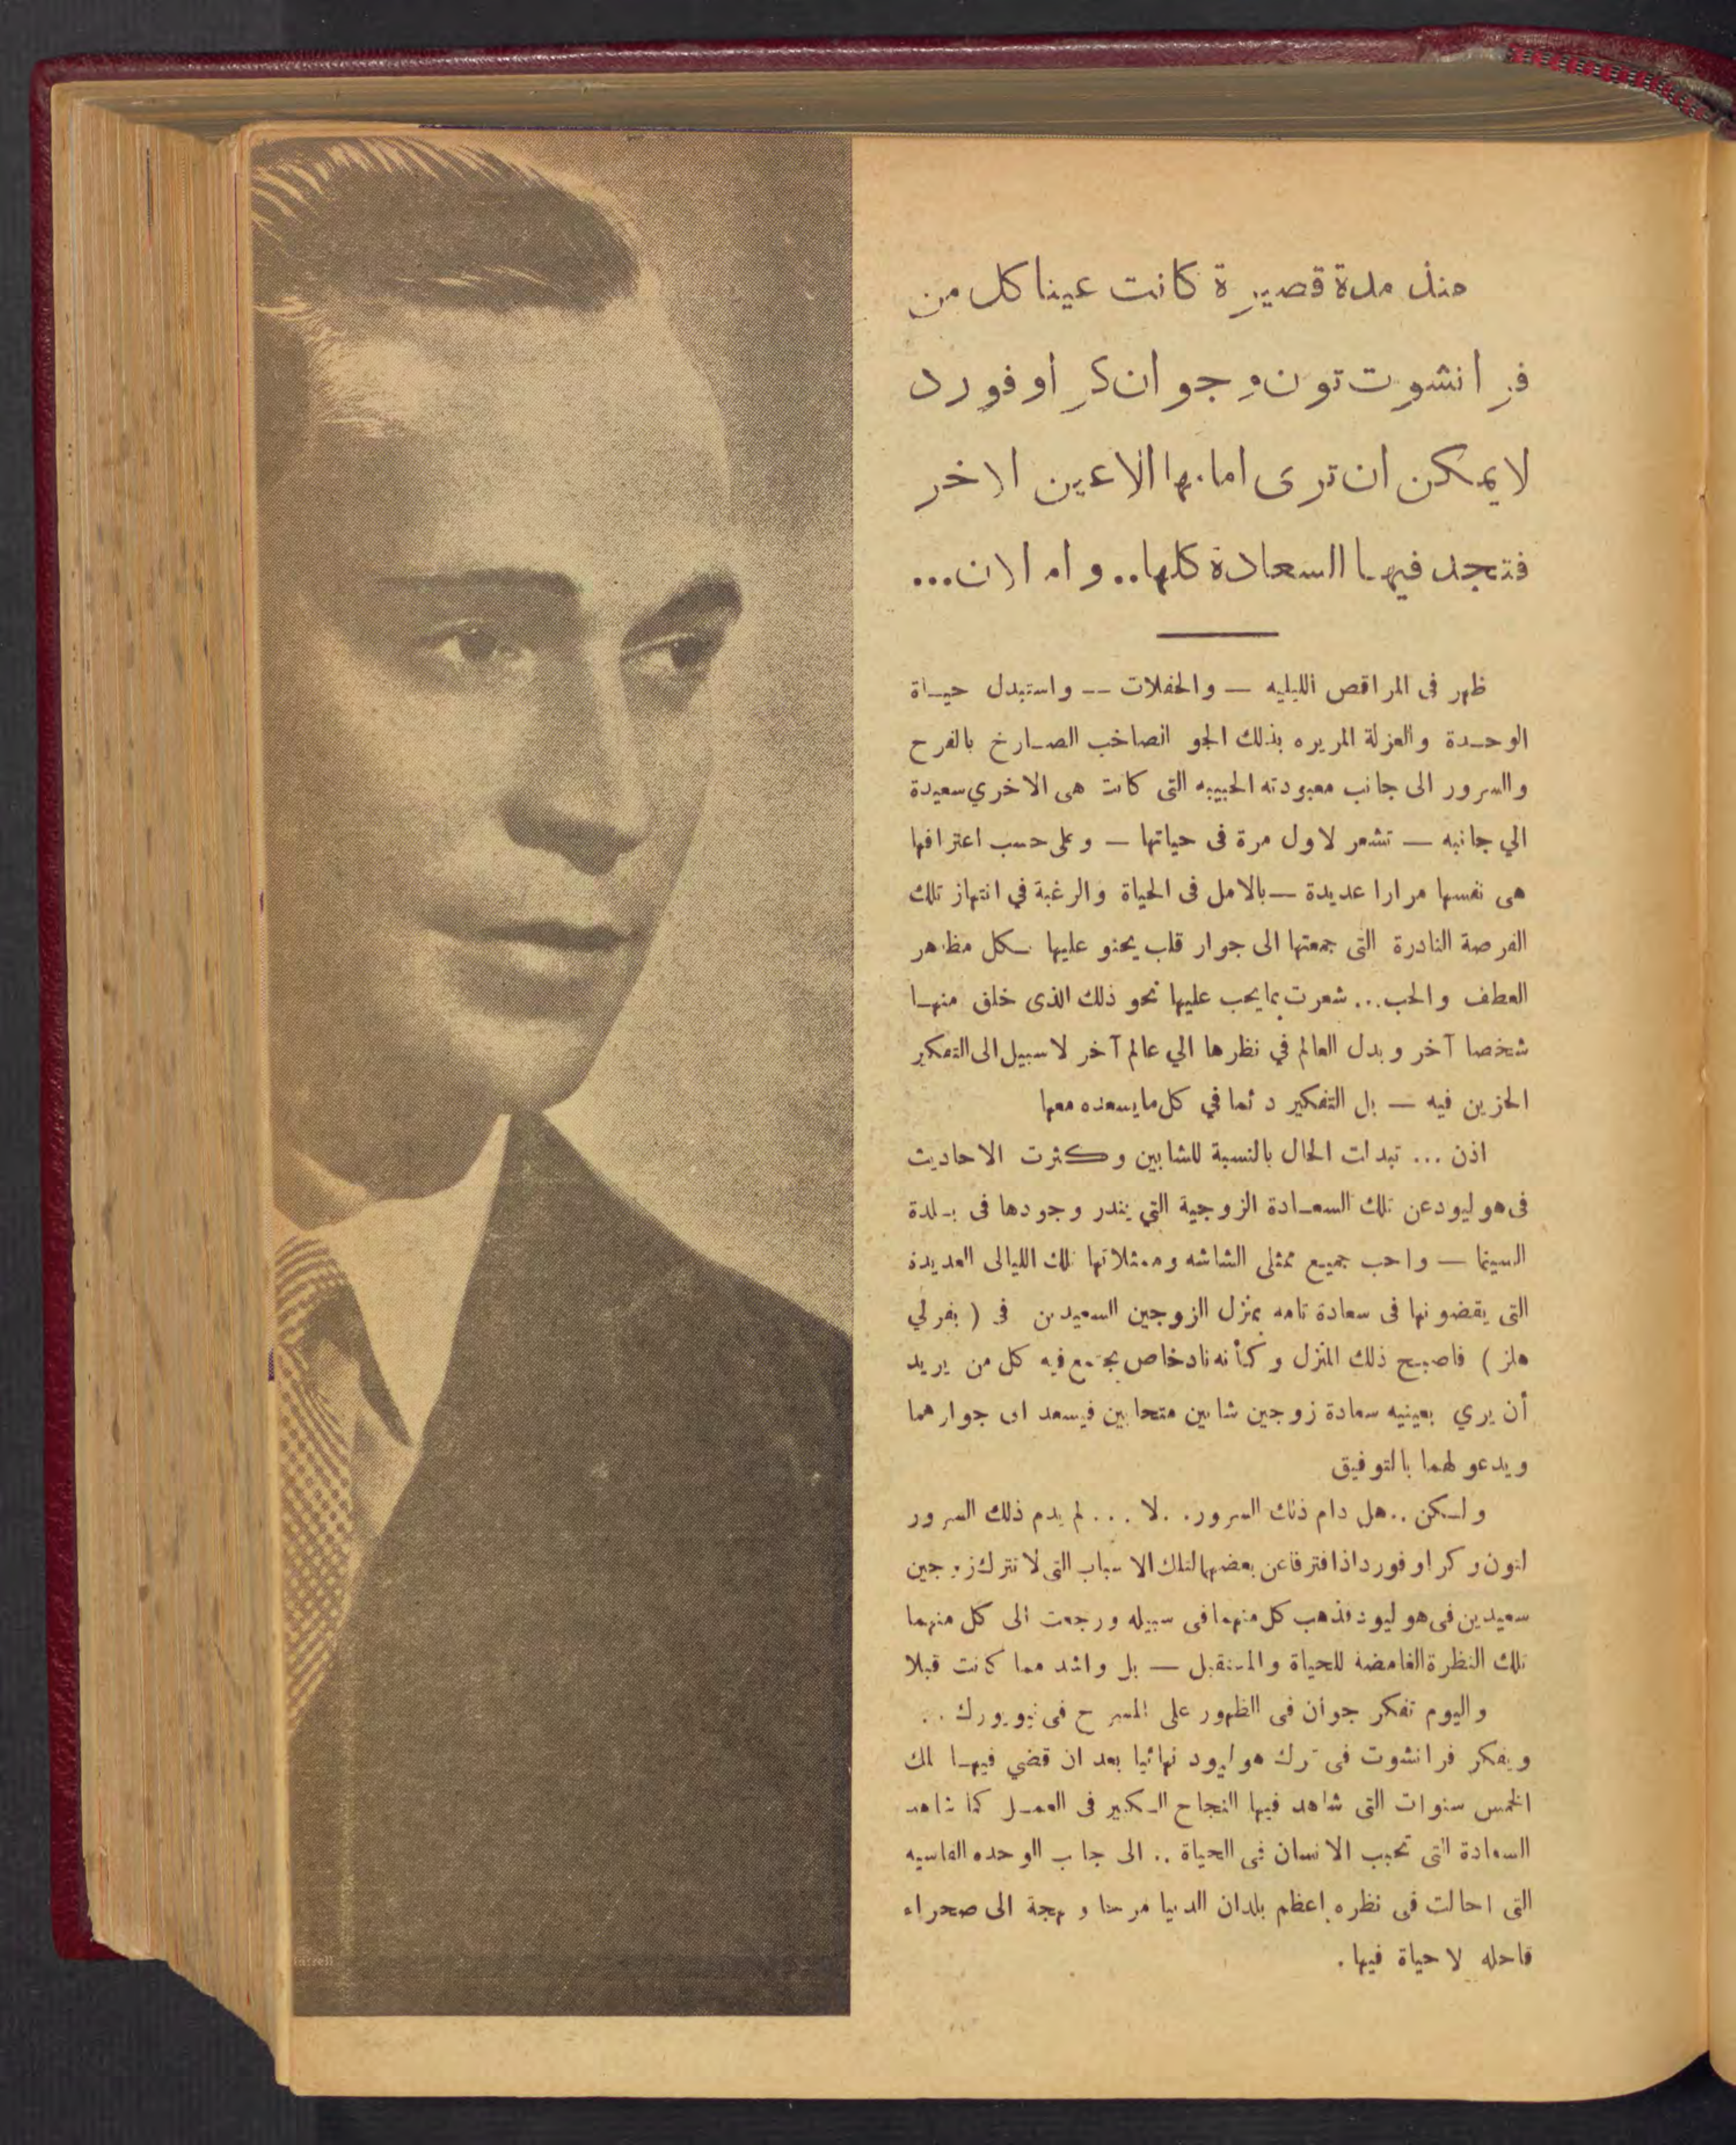 منذ مدة قصيرة كانت عينا كل من
فرانشوت تون وجوان كراوفورد
لا يمكن ان ترى امامها الاعين الاخر
فتجد فيها السعادة كلها.. وام الان...
ظهر فى المراقص الليليه — والحفلات -- واستبدل حيـاة
الوحـدة والعزلة المريره بذلك الجو الصاخب الصـارخ بالفرح
والسرور الى جانب معبودته الحبيبه التى كانت هى الاخري سعيدة
الي جانبه — تشعر لاول مرة فى حياتها — وعلى حسب اعترافها
هى نفسها مرارا عديدة — بالامل فى الحياة والرغبة في انتهاز تلك
الفرصة النادرة التى جمعتها الى جوار قلب يحنو عليها بكل مظاهر
العطف والحب... شعرت بما يجب عليها نحو ذلك الذى خلق منهـا
شخصا آخر وبدل العالم في نظرها الي عالم آخر لا سبيل الى التفكير
الحزين فيه — بل التفكير دئما في كل ما يسعده معها
اذن ... تبدلت الحال بالنسبة للشابين وكثرت الاحاديث
فى هوليود عن تلك السعـادة الزوجية التي يندر وجودها فى بـلدة
السينما — واحب جميع ممثلى الشاشه وممثلاتها تلك الليالى العديدة
التى يقضونها فى سعادة تامه بمنزل الزوجين السعيدين فى ( بفرلي
هلز ) فاصبح ذلك المنزل وكأنه ناد خاص يجتمع فيه كل من يريد
أن يري بعينيه سعادة زوجين شابين متحابين فيسعد الى جوارهما
ويدعو لهما بالتوفيق
ولـكن .. هل دام ذلك السرور. .لا ... لم يدم ذلك السرور
لتون وكراوفورد اذا افترقا عن بعضهما لتلك الاسباب التى لا تترك زوجين
سعيدين فى هوليود فذهب كل منهما فى سبيله ورجعت الى كل منهما
تلك النظرة الغامضة للحياة والمستقبل — بل واشد مما كانت قبلا
واليوم تفكر جوان فى الظهور على المسرح فى نيويورك ..
ويفكر فرانشوت فى ترك هوليود نهائيا بعد ان قضي فيهـا تلك
الخمس سنوات التى شاهد فيها النجاح الـكبير فى العمـل كما شاهد
السعادة التى تحبب الانسان فى الحياة .. الى جانب الوحده القاسيه
التى احالت فى نظره اعظم بلدان الدنيا مرحا وبهجة الى صحراء
قاحله لا حياة فيها .